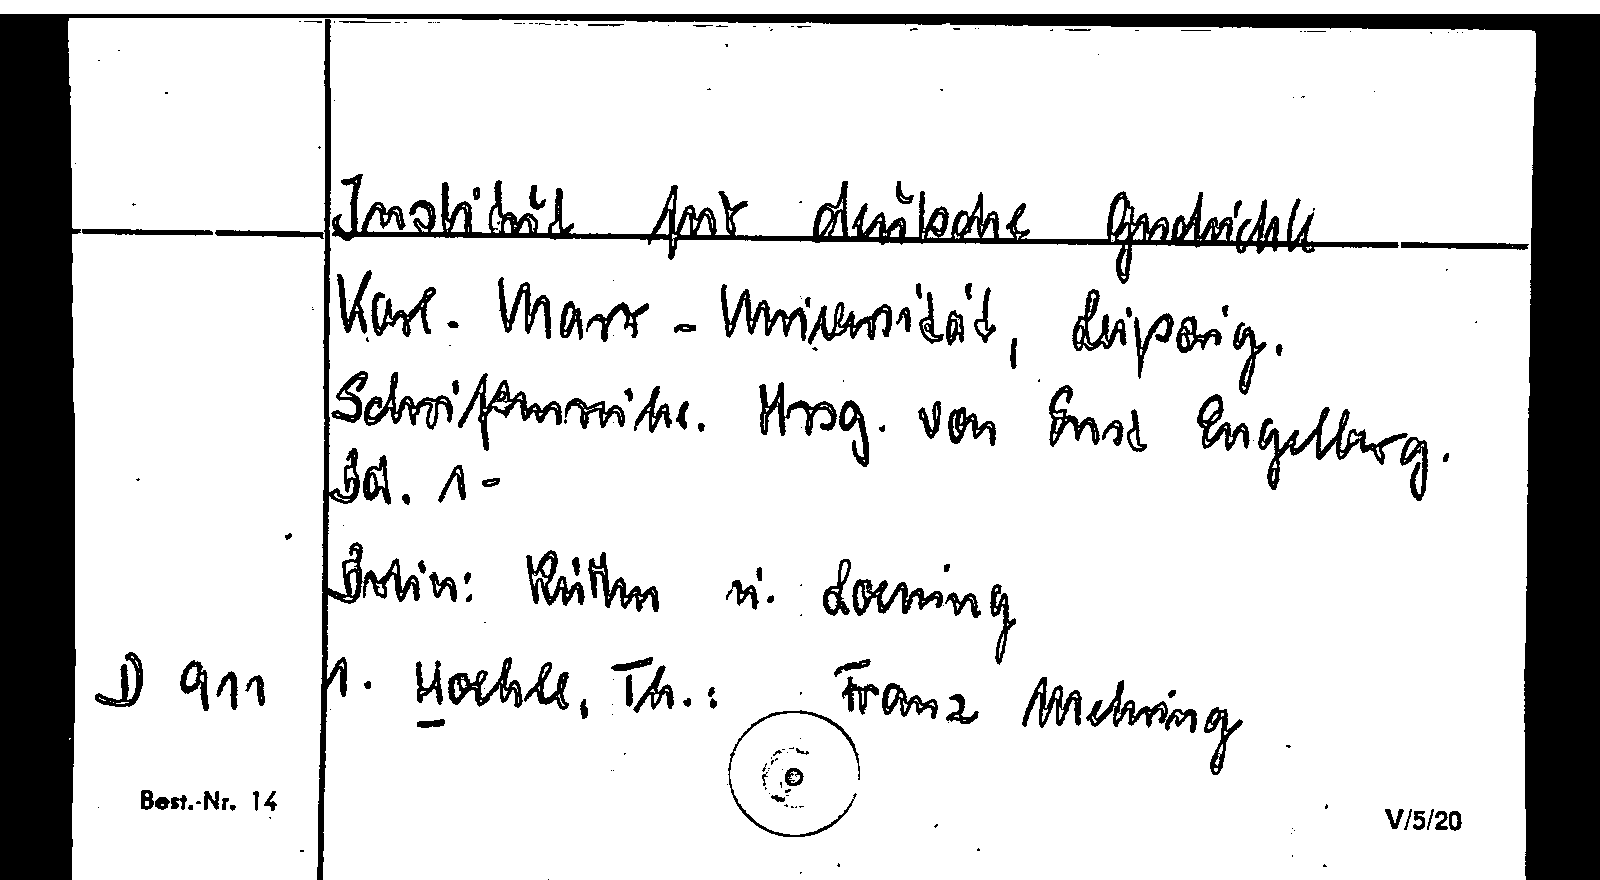 Institut für deutsche Geschichte
Karl-Marx-Universität, Leipzig.
Schriftenreihe. Hrsg. von Ernst Engelberg.
Bd. 1-
Berlin: Rütten u. Loening
D 911 1. Hoehle, Th.: Franz Mehring
Best.-Nr. 14
V/5/20